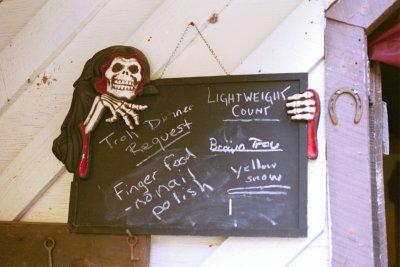 Troll Dinner
Request
Finger food
- no nail
polish
LIGHTWEIGHT
COUNT
Brain Troy
yellow
snow